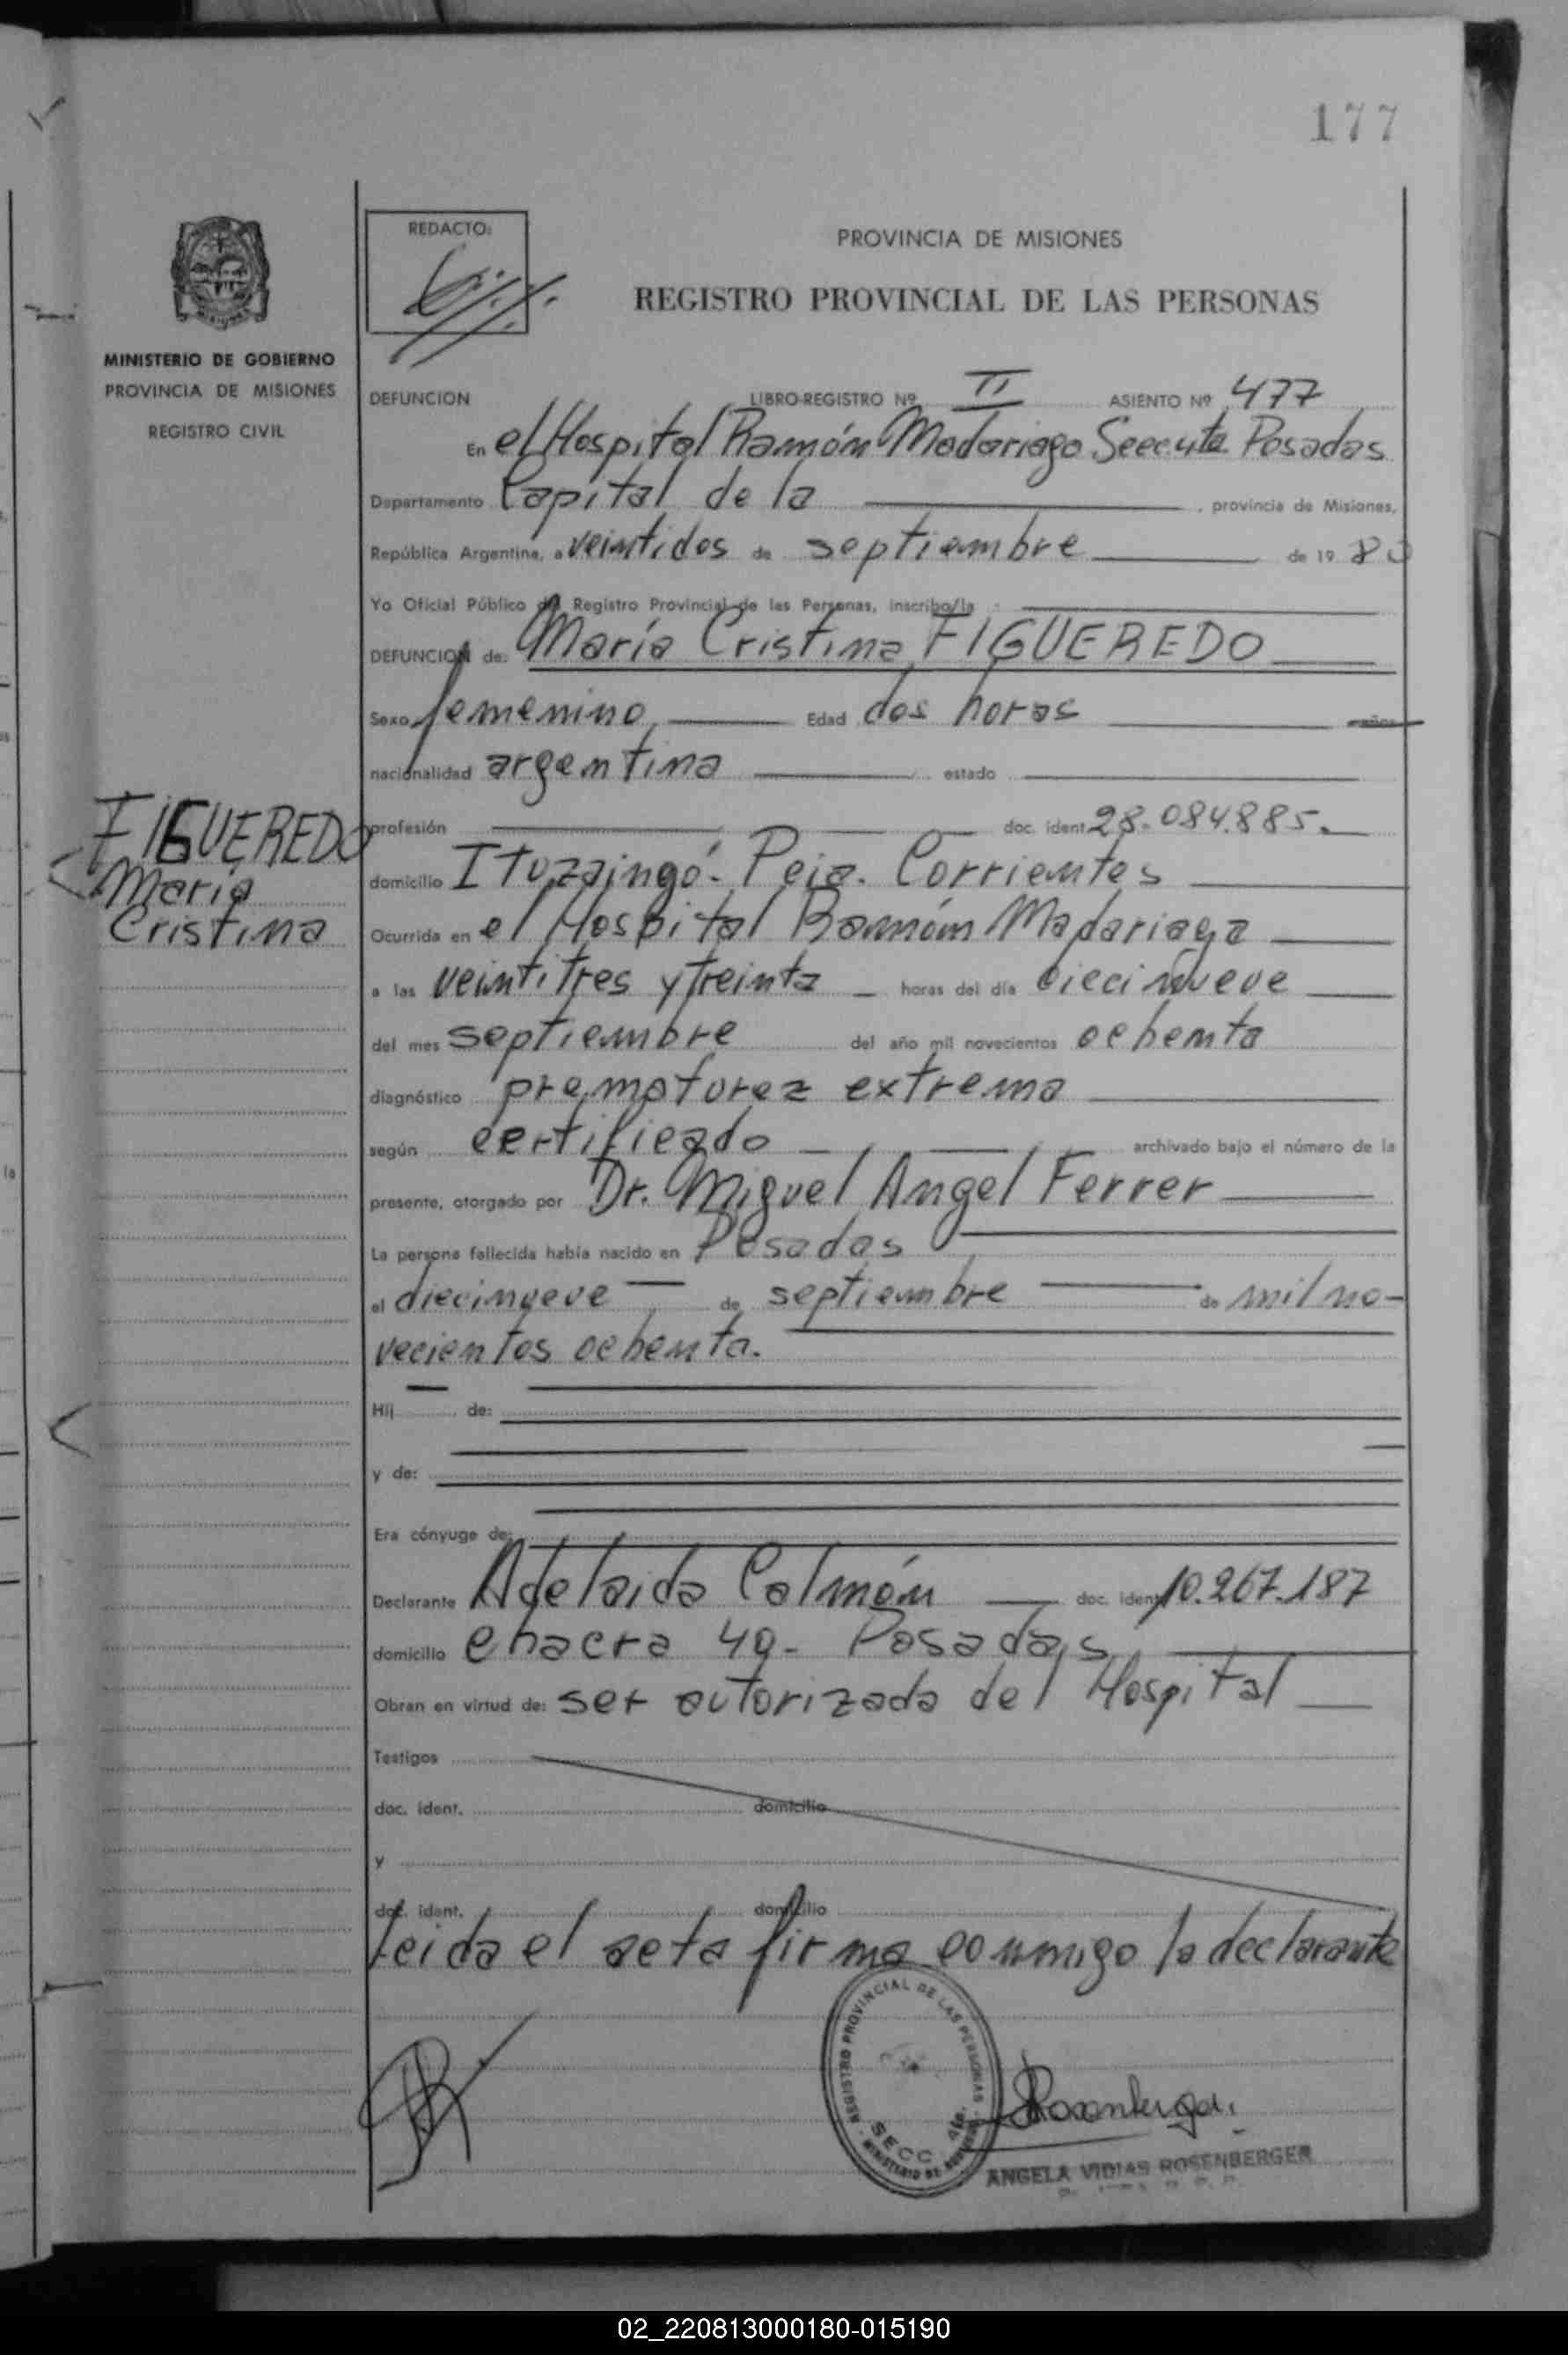 177
REDACTO:
PROVINCIA DE MISIONES
REGISTRO PROVINCIAL DE LAS PERSONAS
MINISTERIO DE GOBIERNO
PROVINCIA DE MISIONES
REGISTRO CIVIL
DEFUNCION LIBRO-REGISTRO Nº II ASIENTO Nº 477
En el Hospital Ramón Madariaga Posadas
Departamento Capital de la , provincia de Misiones,
República Argentina, a veintidos de septiembre de 19 80
Yo Oficial Público del Registro Provincial de las Personas, inscribo/la
DEFUNCION de: María Cristina FIGUEREDO
Sexo femenino Edad dos horas años
nacionalidad argentina estado
FIGUEREDO
María
Cristina
profesión doc. ident. 28.084.885.
domicilio Ituzaingó - Pcia. Corrientes
Ocurrida en el Hospital Ramón Madariaga
a las veintitres y treinta horas del día diecinueve
del mes septiembre del año mil novecientos ochenta
diagnóstico prematurez extrema
según certificado archivado bajo el número de la
presente, otorgado por Dr. Miguel Angel Ferrer
La persona fallecida había nacido en Posadas
el diecinueve de septiembre de mil no-
vecientos ochenta.
Hij de:
y de:
Era cónyuge de:
Declarante Adelaida Colmán doc. ident. 10.267.187
domicilio chacra 49 - Posadas
Obran en virtud de: ser autorizada del Hospital
Testigos
doc. ident. domicilio
y
doc. ident. domicilio
Leida el acta firma conmigo la declarante
REGISTRO PROVINCIAL DE LAS PERSONAS
SECC. 4ta.
Rosenberger
ANGELA VIDIAS ROSENBERGER
02_220813000180-015190